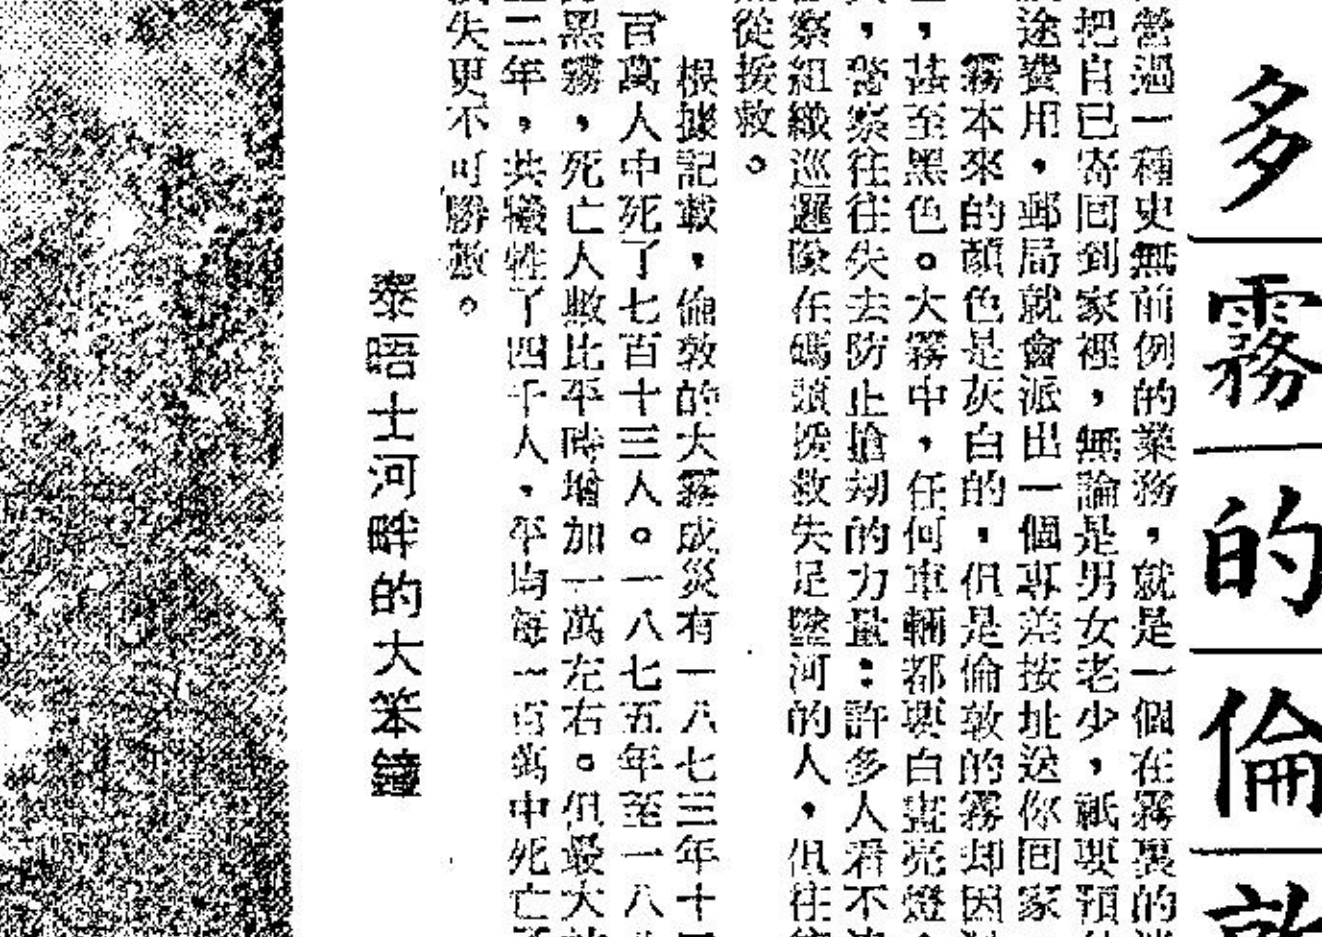 多霧的倫敦
營過一種史無前例的業務，就是一個在霧裏的
把自己寄回到家裡，無論是男女老少，祇要預
途費用，郵局就會派出一個專差按址送你回家
霧本來的顏色是灰白的，但是倫敦的霧却因
，甚至黑色。大霧中，任何車輛都要白晝亮燈
，警察往往失去防止搶刼的力量：許多人看不
察組織巡邏隊在碼頭援救失足墜河的人，但往
從援救。
根據記載，倫敦的大霧成災有一八七三年十
百萬人中死了七百十三人。一八七五年至一八
黑霧，死亡人數比平時增加一萬左右。但最大
二年，共犧牲了四千人，平均每一百萬中死亡
失更不可勝數。
泰晤士河畔的大笨鐘